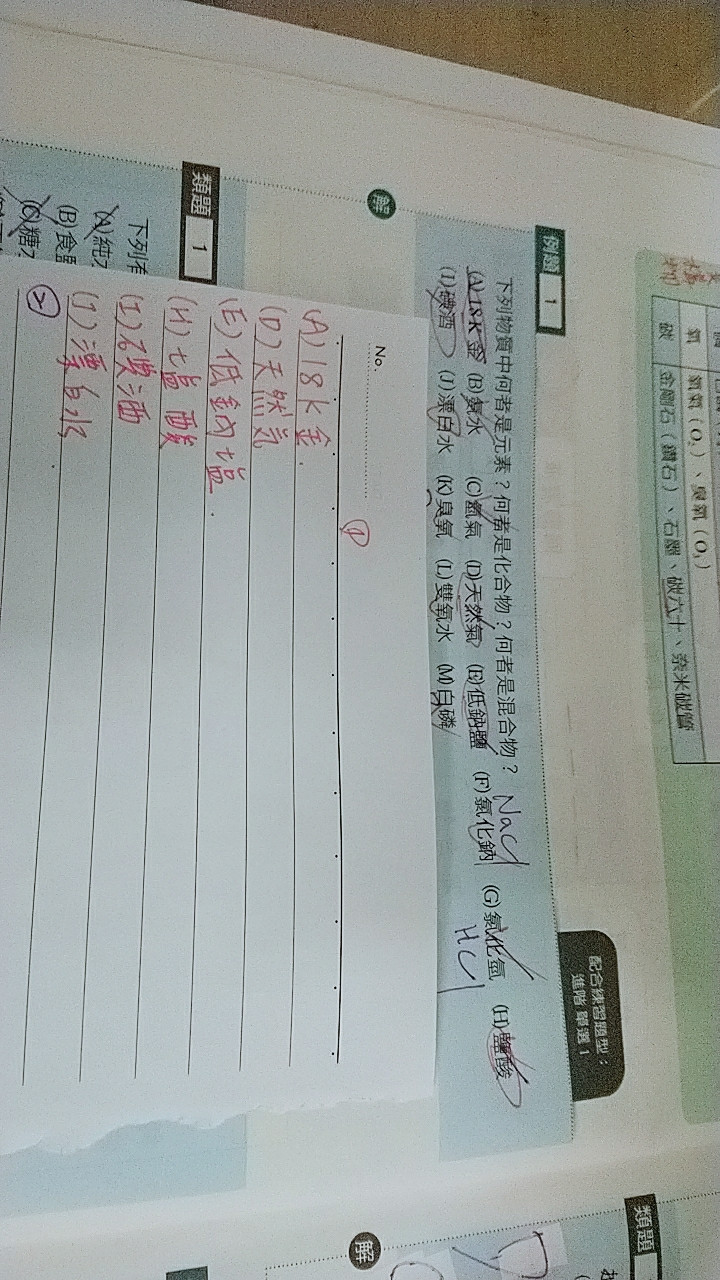 氧 氧氣（O₂）、臭氧（O₃）
碳 金剛石（鑽石）、石墨、碳六十、奈米碳管
配合練習題型：
進階 單選 1
例題 1
下列物質中何者是元素？何者是化合物？何者是混合物？
(A)18K金 (B)氨水 (C)氬氣 (D)天然氣 (E)低鈉鹽 (F)氯化鈉 (G)氯化氫 (H)鹽酸
(I)碘酒 (J)漂白水 (K)臭氧 (L)雙氧水 (M)白磷
NaCl
HCl
解
No.
①
(A)18K金.
(D)天然氣
(E)低鈉塩.
(H)塩酸
(I)碘酒
(J)漂白水
類題 1
下列有
(A)純
(B)食鹽
(C)糖
類題
解